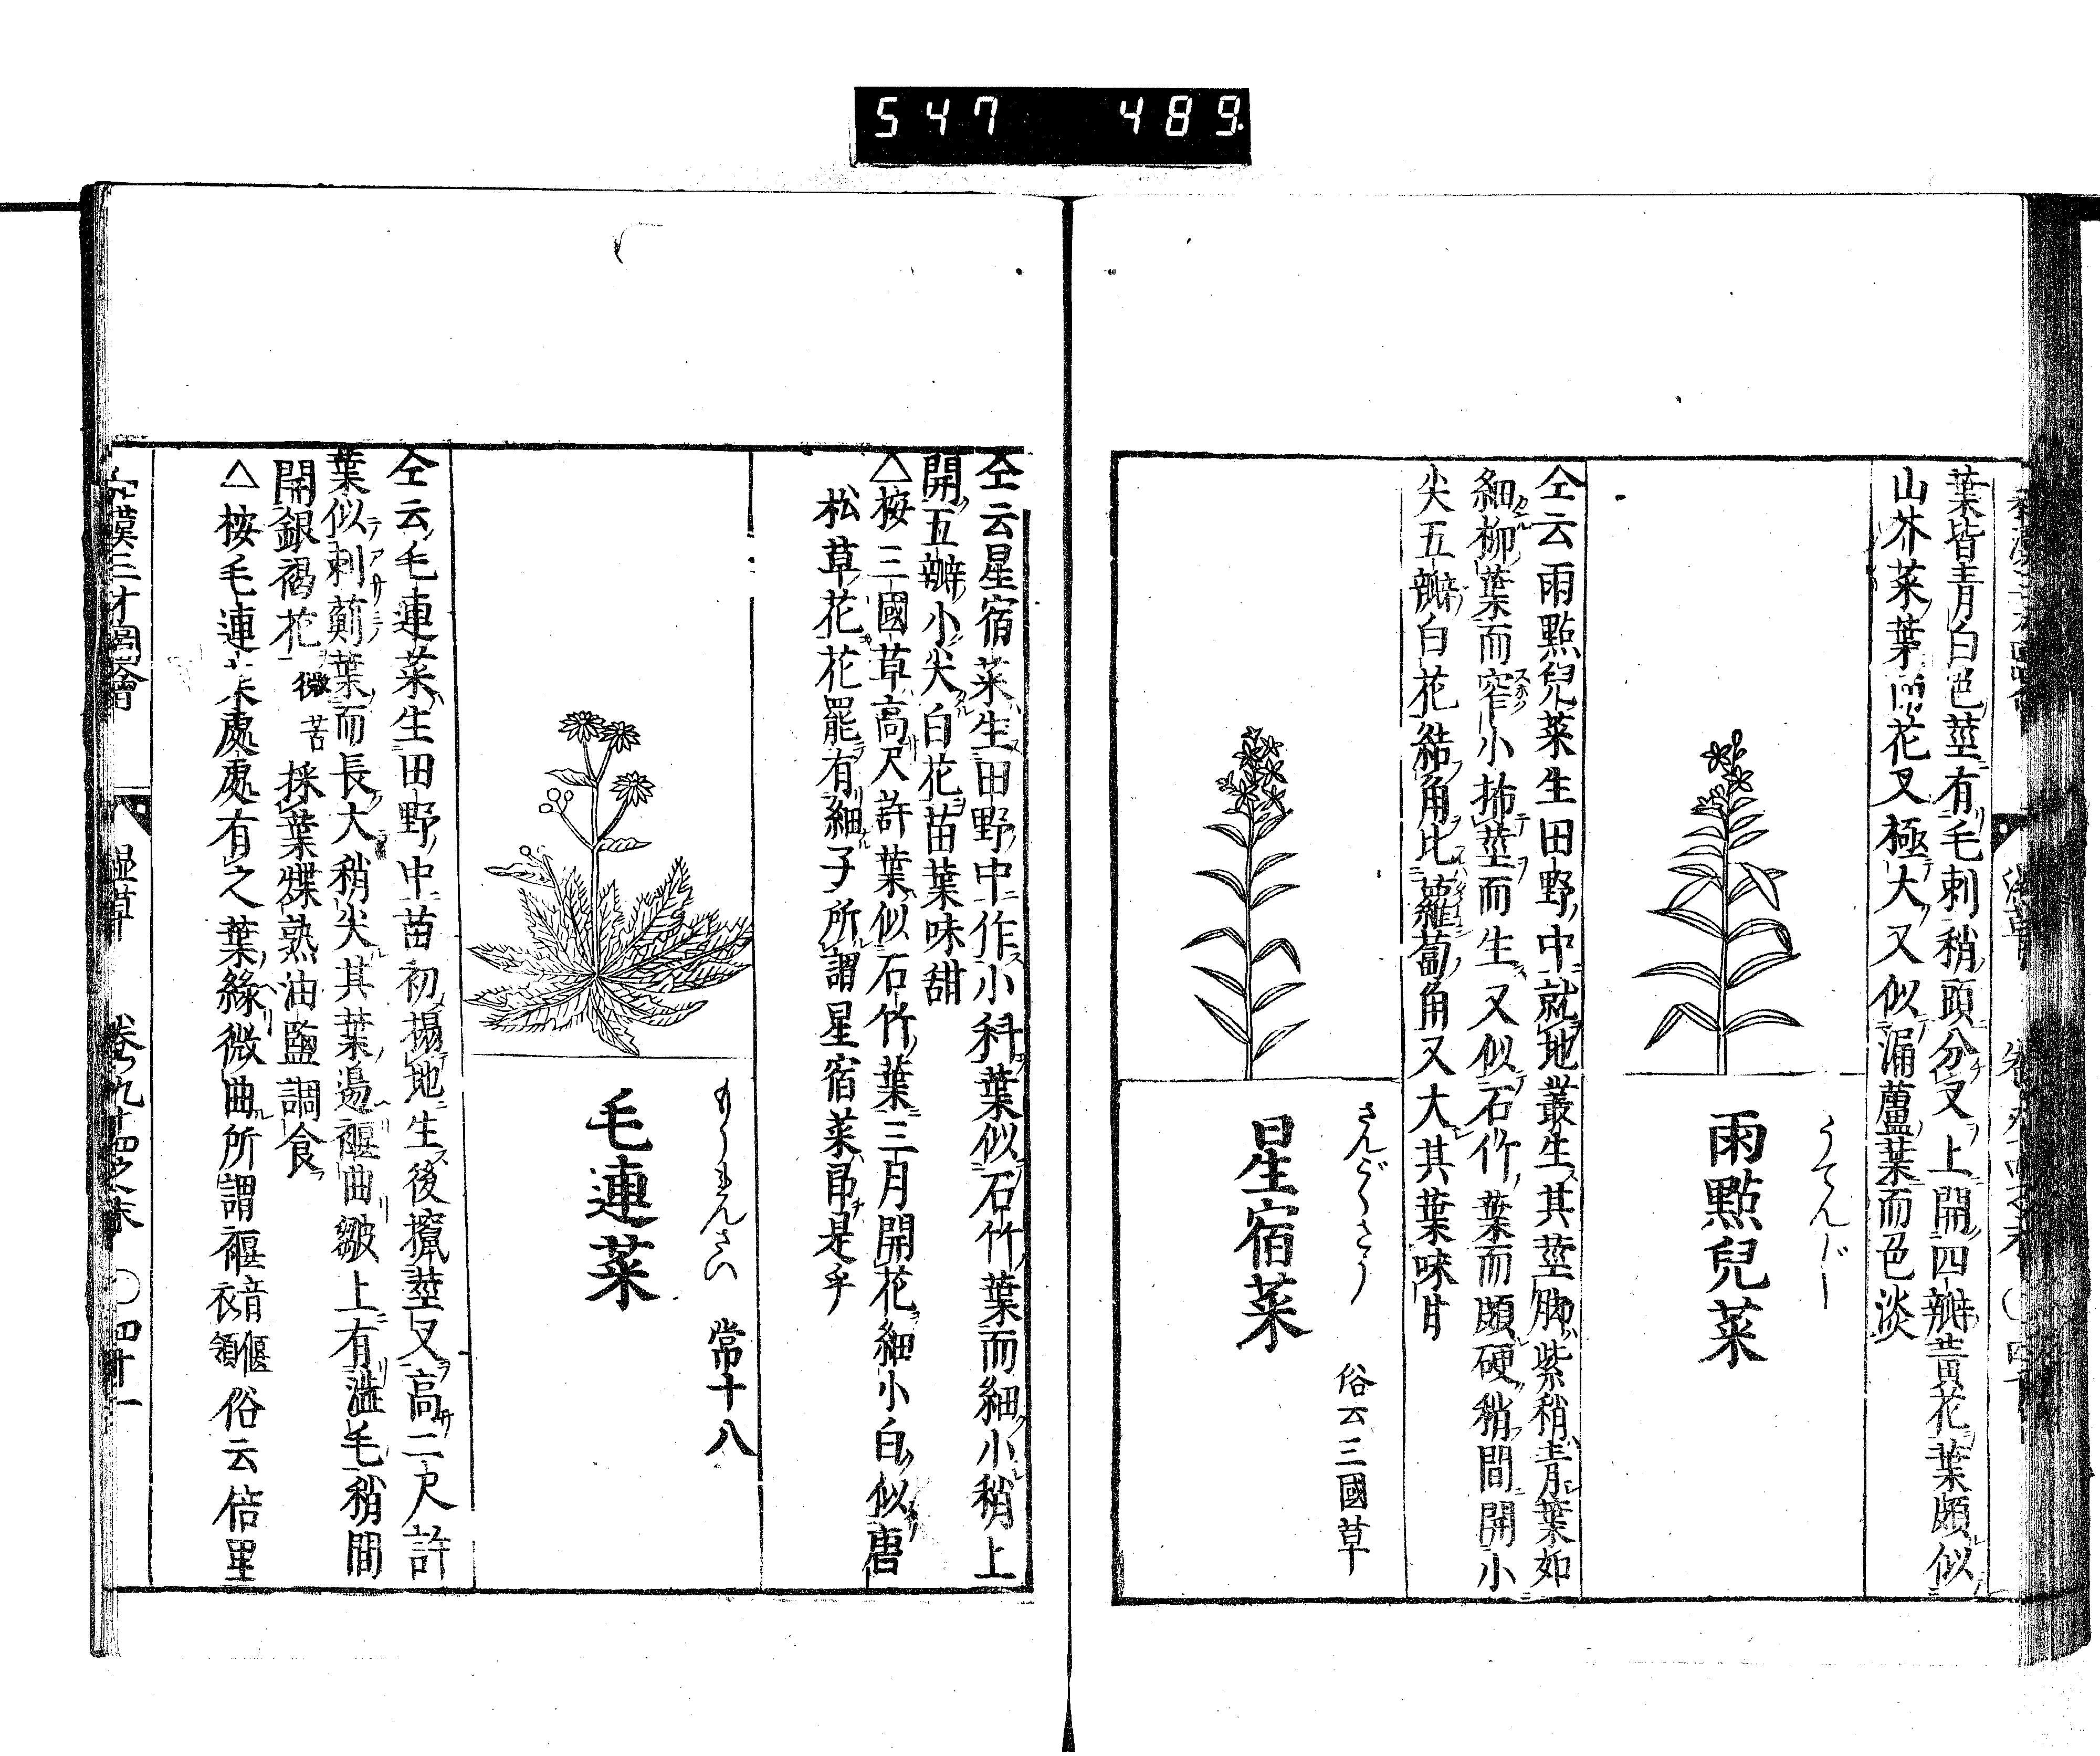 547 489
葉皆青白色莖有毛刺稍頭分叉上開四瓣黄花葉頗似
山芥菜葉而花叉極大又似漏蘆葉而色淡
うてんじ
雨點兒菜
仝云雨點兒菜生田野中就地叢生其莖脚紫稍青葉如
細柳葉而窄小抪莖而生又似石竹葉而頗硬稍間開小
尖五瓣白花結角比蘿蔔角又大其葉味甘
さんごくさう
星宿菜
俗云三國草
仝云星宿菜生田野中作小科葉似石竹葉而細小稍上
開五瓣小尖白花苗葉味甜
△按三國草高尺許葉似石竹葉三月開花細小白似唐
松草花花罷有細子所謂星宿菜昂是乎
もうれんさい
常十八
毛連菜
仝云毛連菜生田野中苗初搨地生後攛莖叉高二尺許
葉似刺薊葉而長大稍尖其葉邊褗曲皺上有澁毛稍間
開銀褐花微苦採葉煠熟油鹽調食
△按毛連菜處處有之葉緣微曲所謂褗音偃衣領俗云倍里
和漢三才圖會 濕草 卷九十四之末 〇四十一